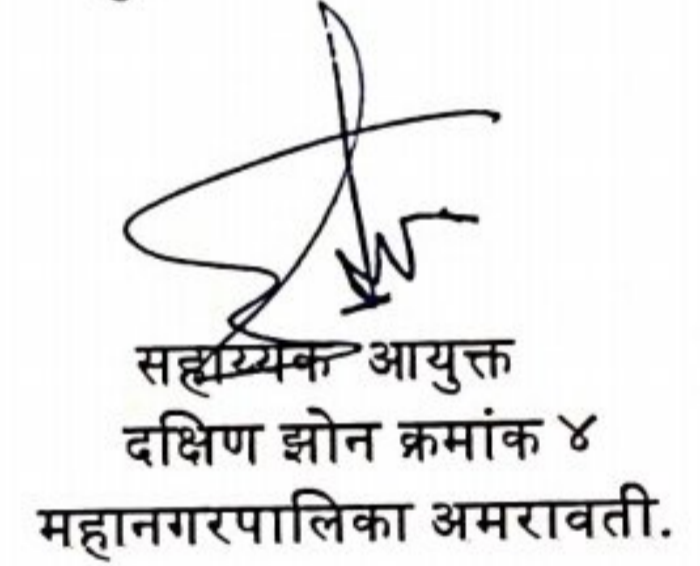 सहाय्यक आयुक्त
दक्षिण झोन क्रमांक ४
महानगरपालिका अमरावती.